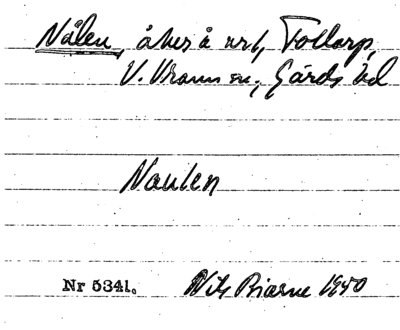 Nålen, åker å nr 6, Tollarp,
V. Vram sn, Gärds hd
Naulen
Nr 5341. Nils Bjarne 1950